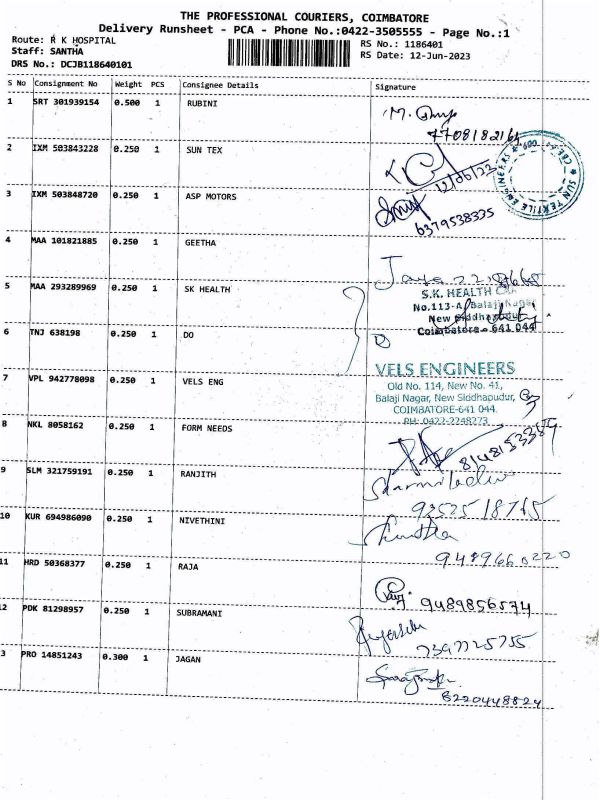 THE PROFESSIONAL COURIERS, COIMBATORE
Delivery Runsheet - PCA - Phone No.:0422-3505555 - Page No.:1
Route: R K HOSPITAL
Staff: SANTHA
DRS No.: DCJB118640101
RS No.: 1186401
RS Date: 12-Jun-2023
S No Consignment No Weight PCS Consignee Details Signature
1 SRT 301939154 0.500 1 RUBINI
7708182164
2 IXM 503843228 0.250 1 SUN TEX
12/06/23
SUN TEXTILE ENGINEERS
3 IXM 503848720 0.250 1 ASP MOTORS
6379538335
4 MAA 101821885 0.250 1 GEETHA
5 MAA 293289969 0.250 1 SK HEALTH
S.K. HEALTH
No.113-A, Balaji Nagar
New Siddhapudur
Coimbatore - 641 044
6 TNJ 638198 0.250 1 DO
7 VPL 942778098 0.250 1 VELS ENG
VELS ENGINEERS
Old No. 114, New No. 41,
Balaji Nagar, New Siddhapudur,
COIMBATORE-641 044.
PH: 0422-2248273
8 NKL 8058162 0.250 1 FORM NEEDS
8148153389
9 SLM 321759191 0.250 1 RANJITH
10 KUR 694986090 0.250 1 NIVETHINI
9489660220
11 HRD 50368377 0.250 1 RAJA
9489856574
2 PDK 81298957 0.250 1 SUBRAMANI
7397725755
3 PRO 14851243 0.300 1 JAGAN
8220448824